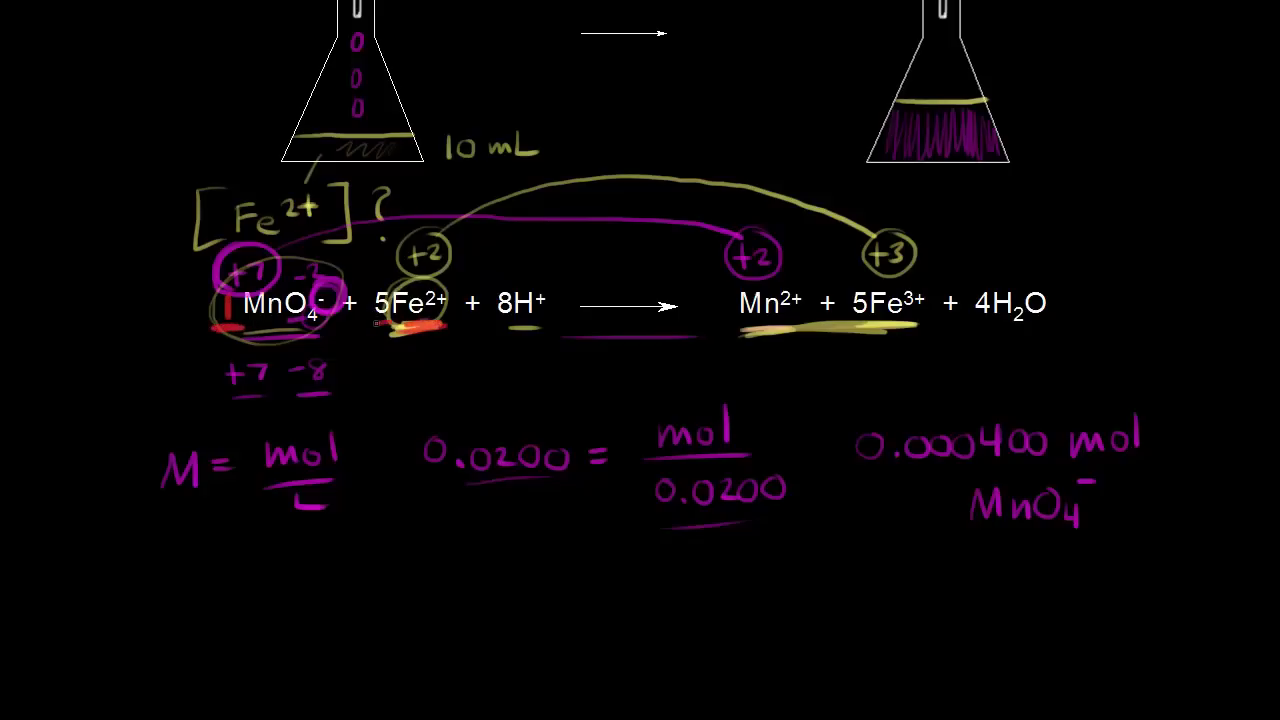 10 mL
[Fe²⁺] ?
+7 -2 +2 +2 +3
1 MnO₄⁻ + 5Fe²⁺ + 8H⁺ → Mn²⁺ + 5Fe³⁺ + 4H₂O
+7 -8
M = mol/L 0.0200 = mol/0.0200 0.000400 mol
MnO₄⁻